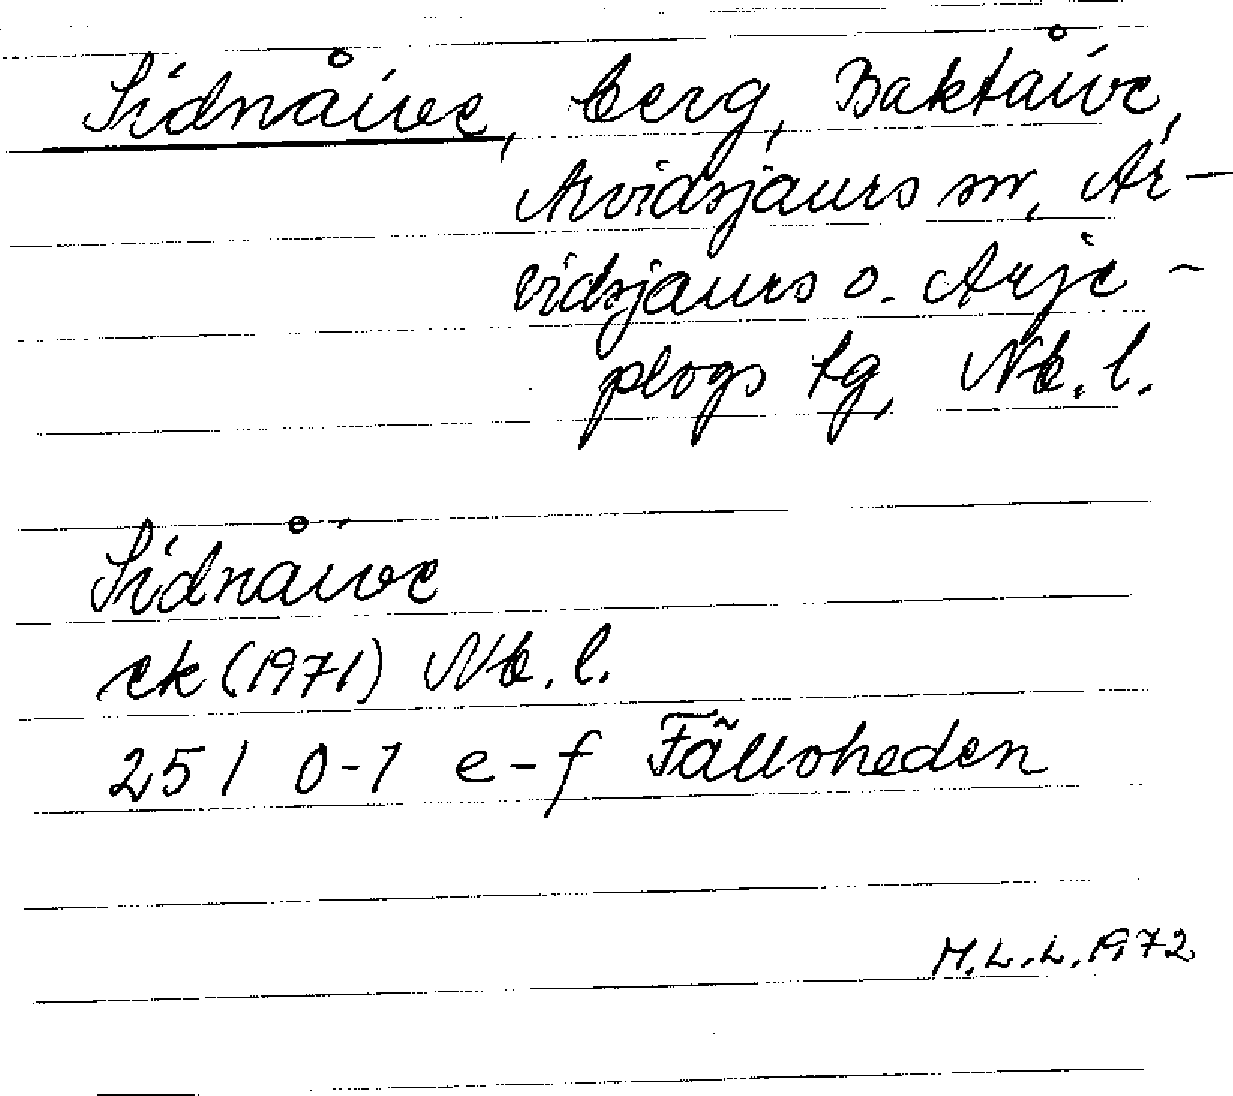 Sidnåive, berg, Baktåive,
Arvidsjaurs sn, Ar-
vidsjaurs o. Arje-
plogs tg, Nb. l.
Sidnåive
ek (1971) Nb. l.
25 I 0-1 e-f Fälloheden
M.L.L. 1972